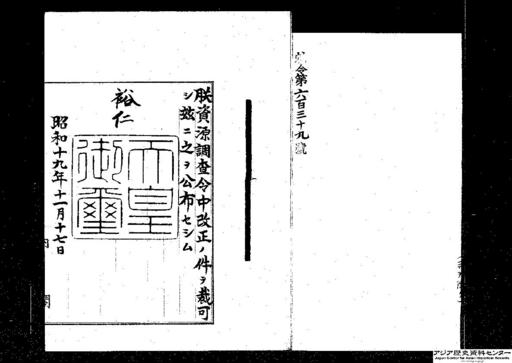 勅令第六百三十九號
朕資源調査令中改正ノ件ヲ裁可
シ茲ニ之ヲ公布セシム
裕仁
天皇御璽
昭和十九年十一月十七日
内閣
アジア歴史資料センター
Japan Center for Asian Historical Records